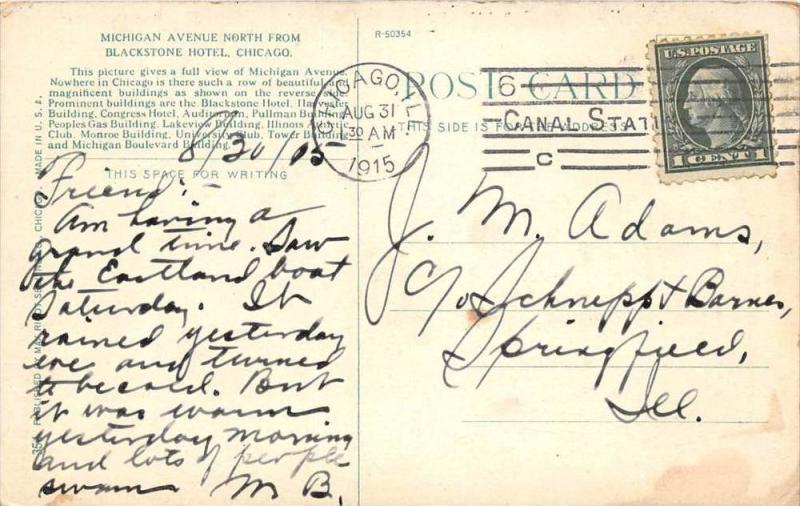 MICHIGAN AVENUE NORTH FROM
BLACKSTONE HOTEL, CHICAGO.
This picture gives a full view of Michigan Avenue.
Nowhere in Chicago is there such a row of beautiful and
magnificent buildings as shown on the reverse side.
Prominent buildings are the Blackstone Hotel, Harvester
Building, Congress Hotel, Auditorium, Pullman Building,
Peoples Gas Building, Lakeview Building, Illinois Athletic
Club, Monroe Building, University Club, Tower Building
and Michigan Boulevard Building.
8/30/15
THIS SPACE FOR WRITING
Friend:-
Am having a
grand time. Saw
the Eastland boat
Saturday. It
rained yesterday
eve and turned
to be cold. But
it was warm
yesterday morning
and lots of people
swam M B.
MADE IN U. S. A.
CHICAGO
354 PUBLISHED BY MAX RIGOT SELLING
R-50354
POST CARD
THIS SIDE IS FOR THE ADDRESS
CHICAGO, ILL.
AUG 31
30 AM
1915
6
CANAL STATI
C
U.S. POSTAGE
1 CENT 1
J. M. Adams,
c/o Schnepp & Barnes,
Springfield,
Ill.